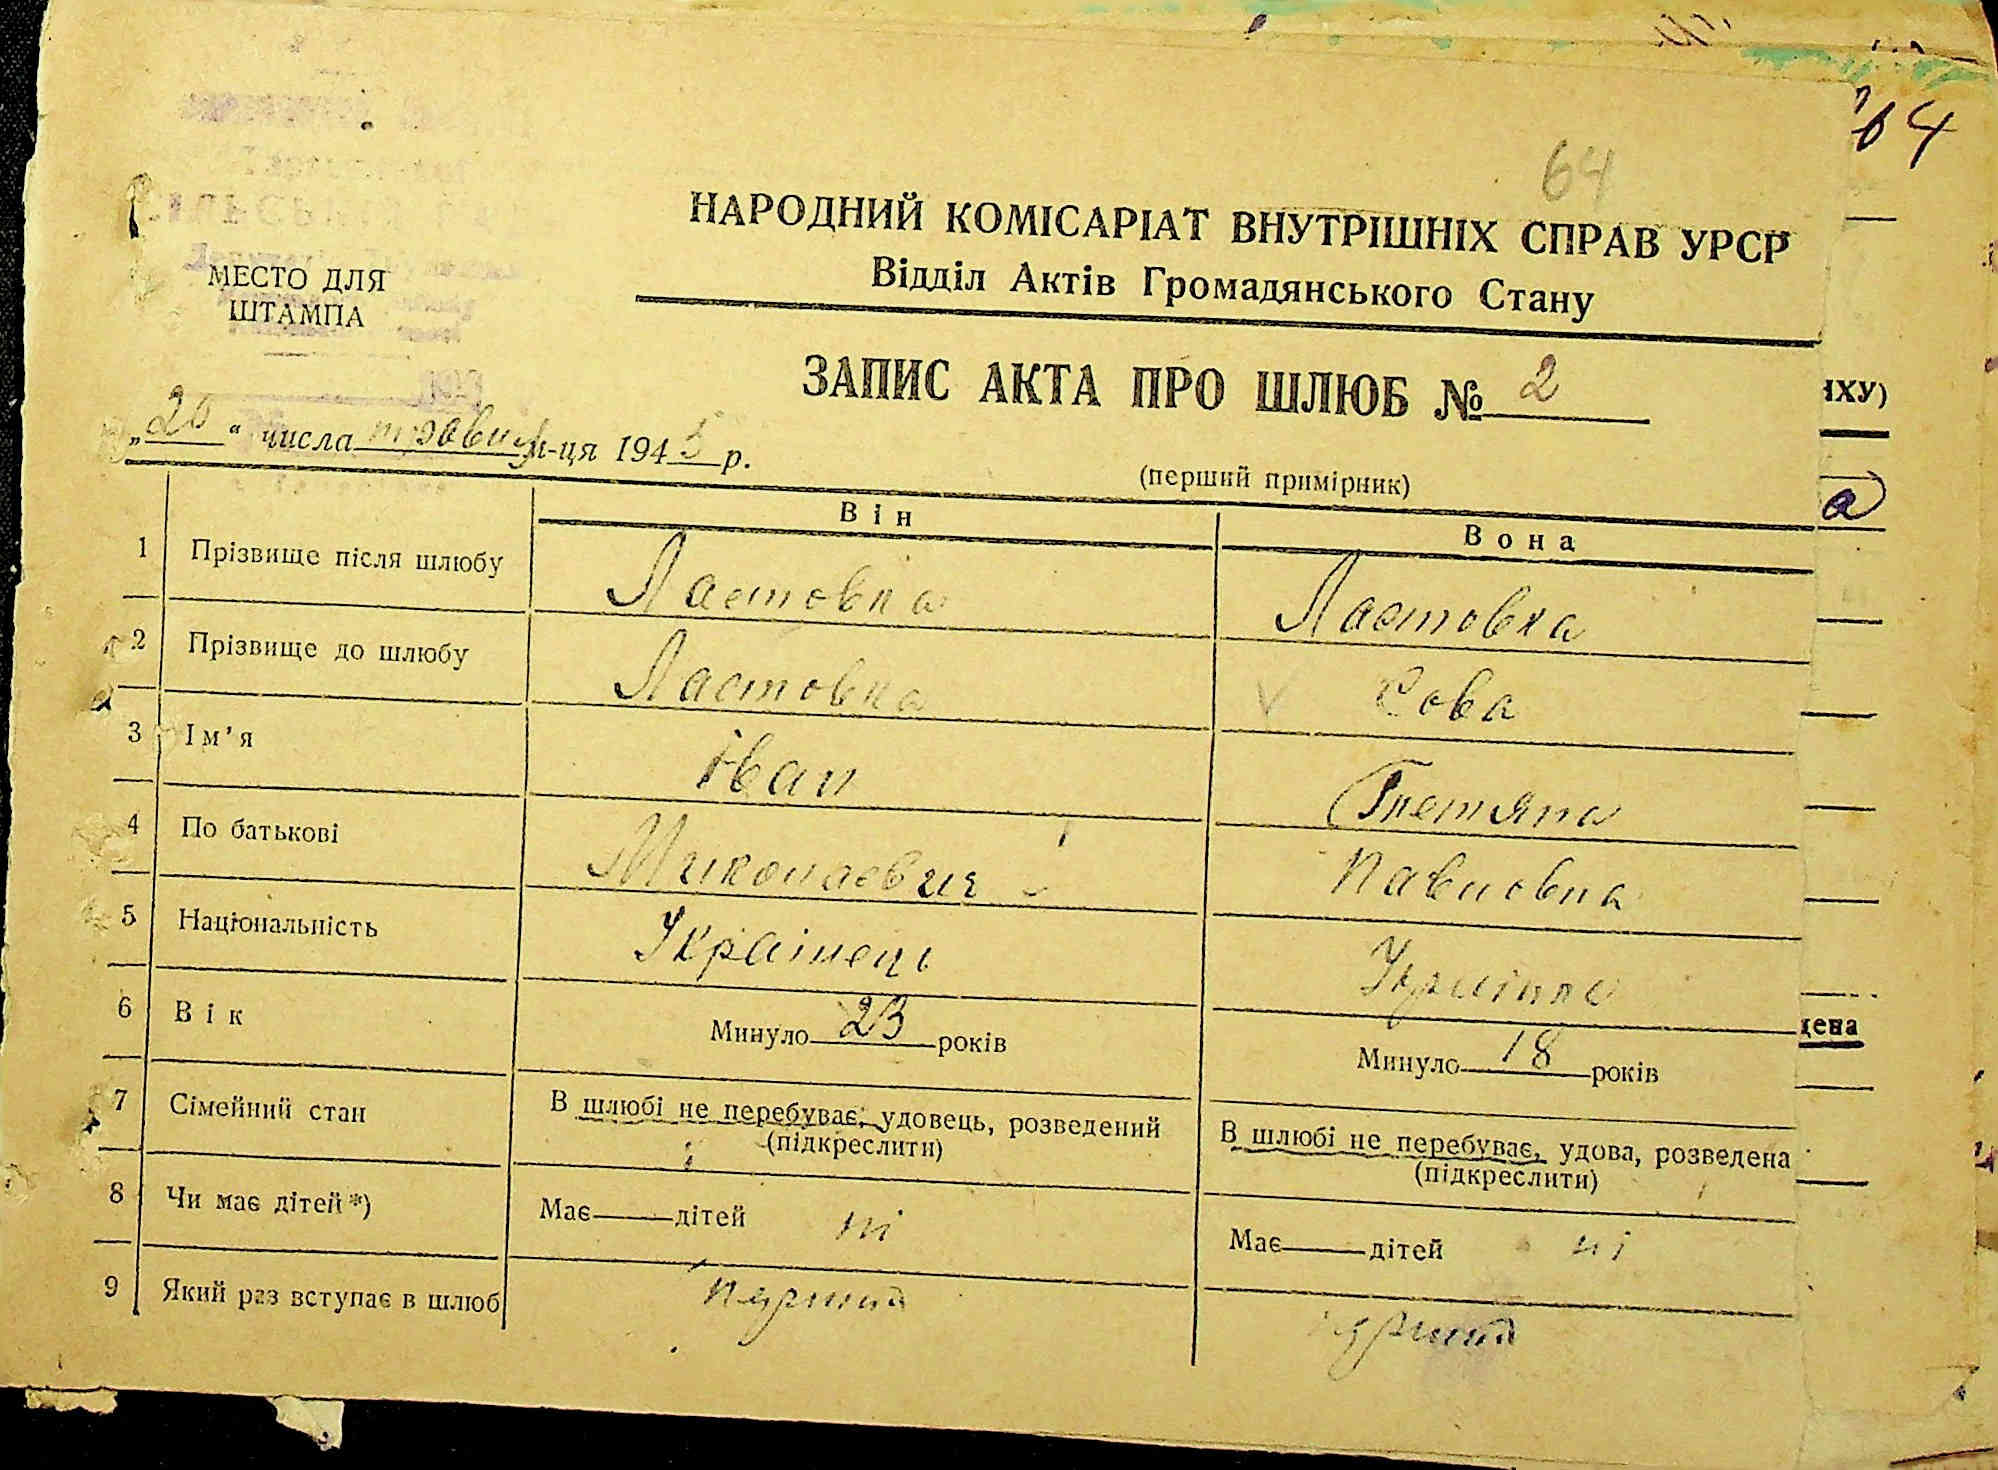 64
64
НАРОДНИЙ КОМІСАРІАТ ВНУТРІШНІХ СПРАВ УРСР
Відділ Актів Громадянського Стану
МЕСТО ДЛЯ
ШТАМПА
ЗАПИС АКТА ПРО ШЛЮБ № 2
„20“ числа травня м-ця 1945 р.
(перший примірник)
Він Вона
1 Прізвище після шлюбу Ластовка Ластовка
2 Прізвище до шлюбу Ластовка Сова
3 Ім’я Іван Тетяна
4 По батькові Миколаєвич Павловна
5 Національність Українець Українка
6 Вік Минуло 23 років Минуло 18 років
7 Сімейний стан В шлюбі не перебуває, удовець, розведений (підкреслити) В шлюбі не перебуває, удова, розведена (підкреслити)
8 Чи має дітей*) Має дітей ні Має дітей ні
9 Який раз вступає в шлюб перший перший